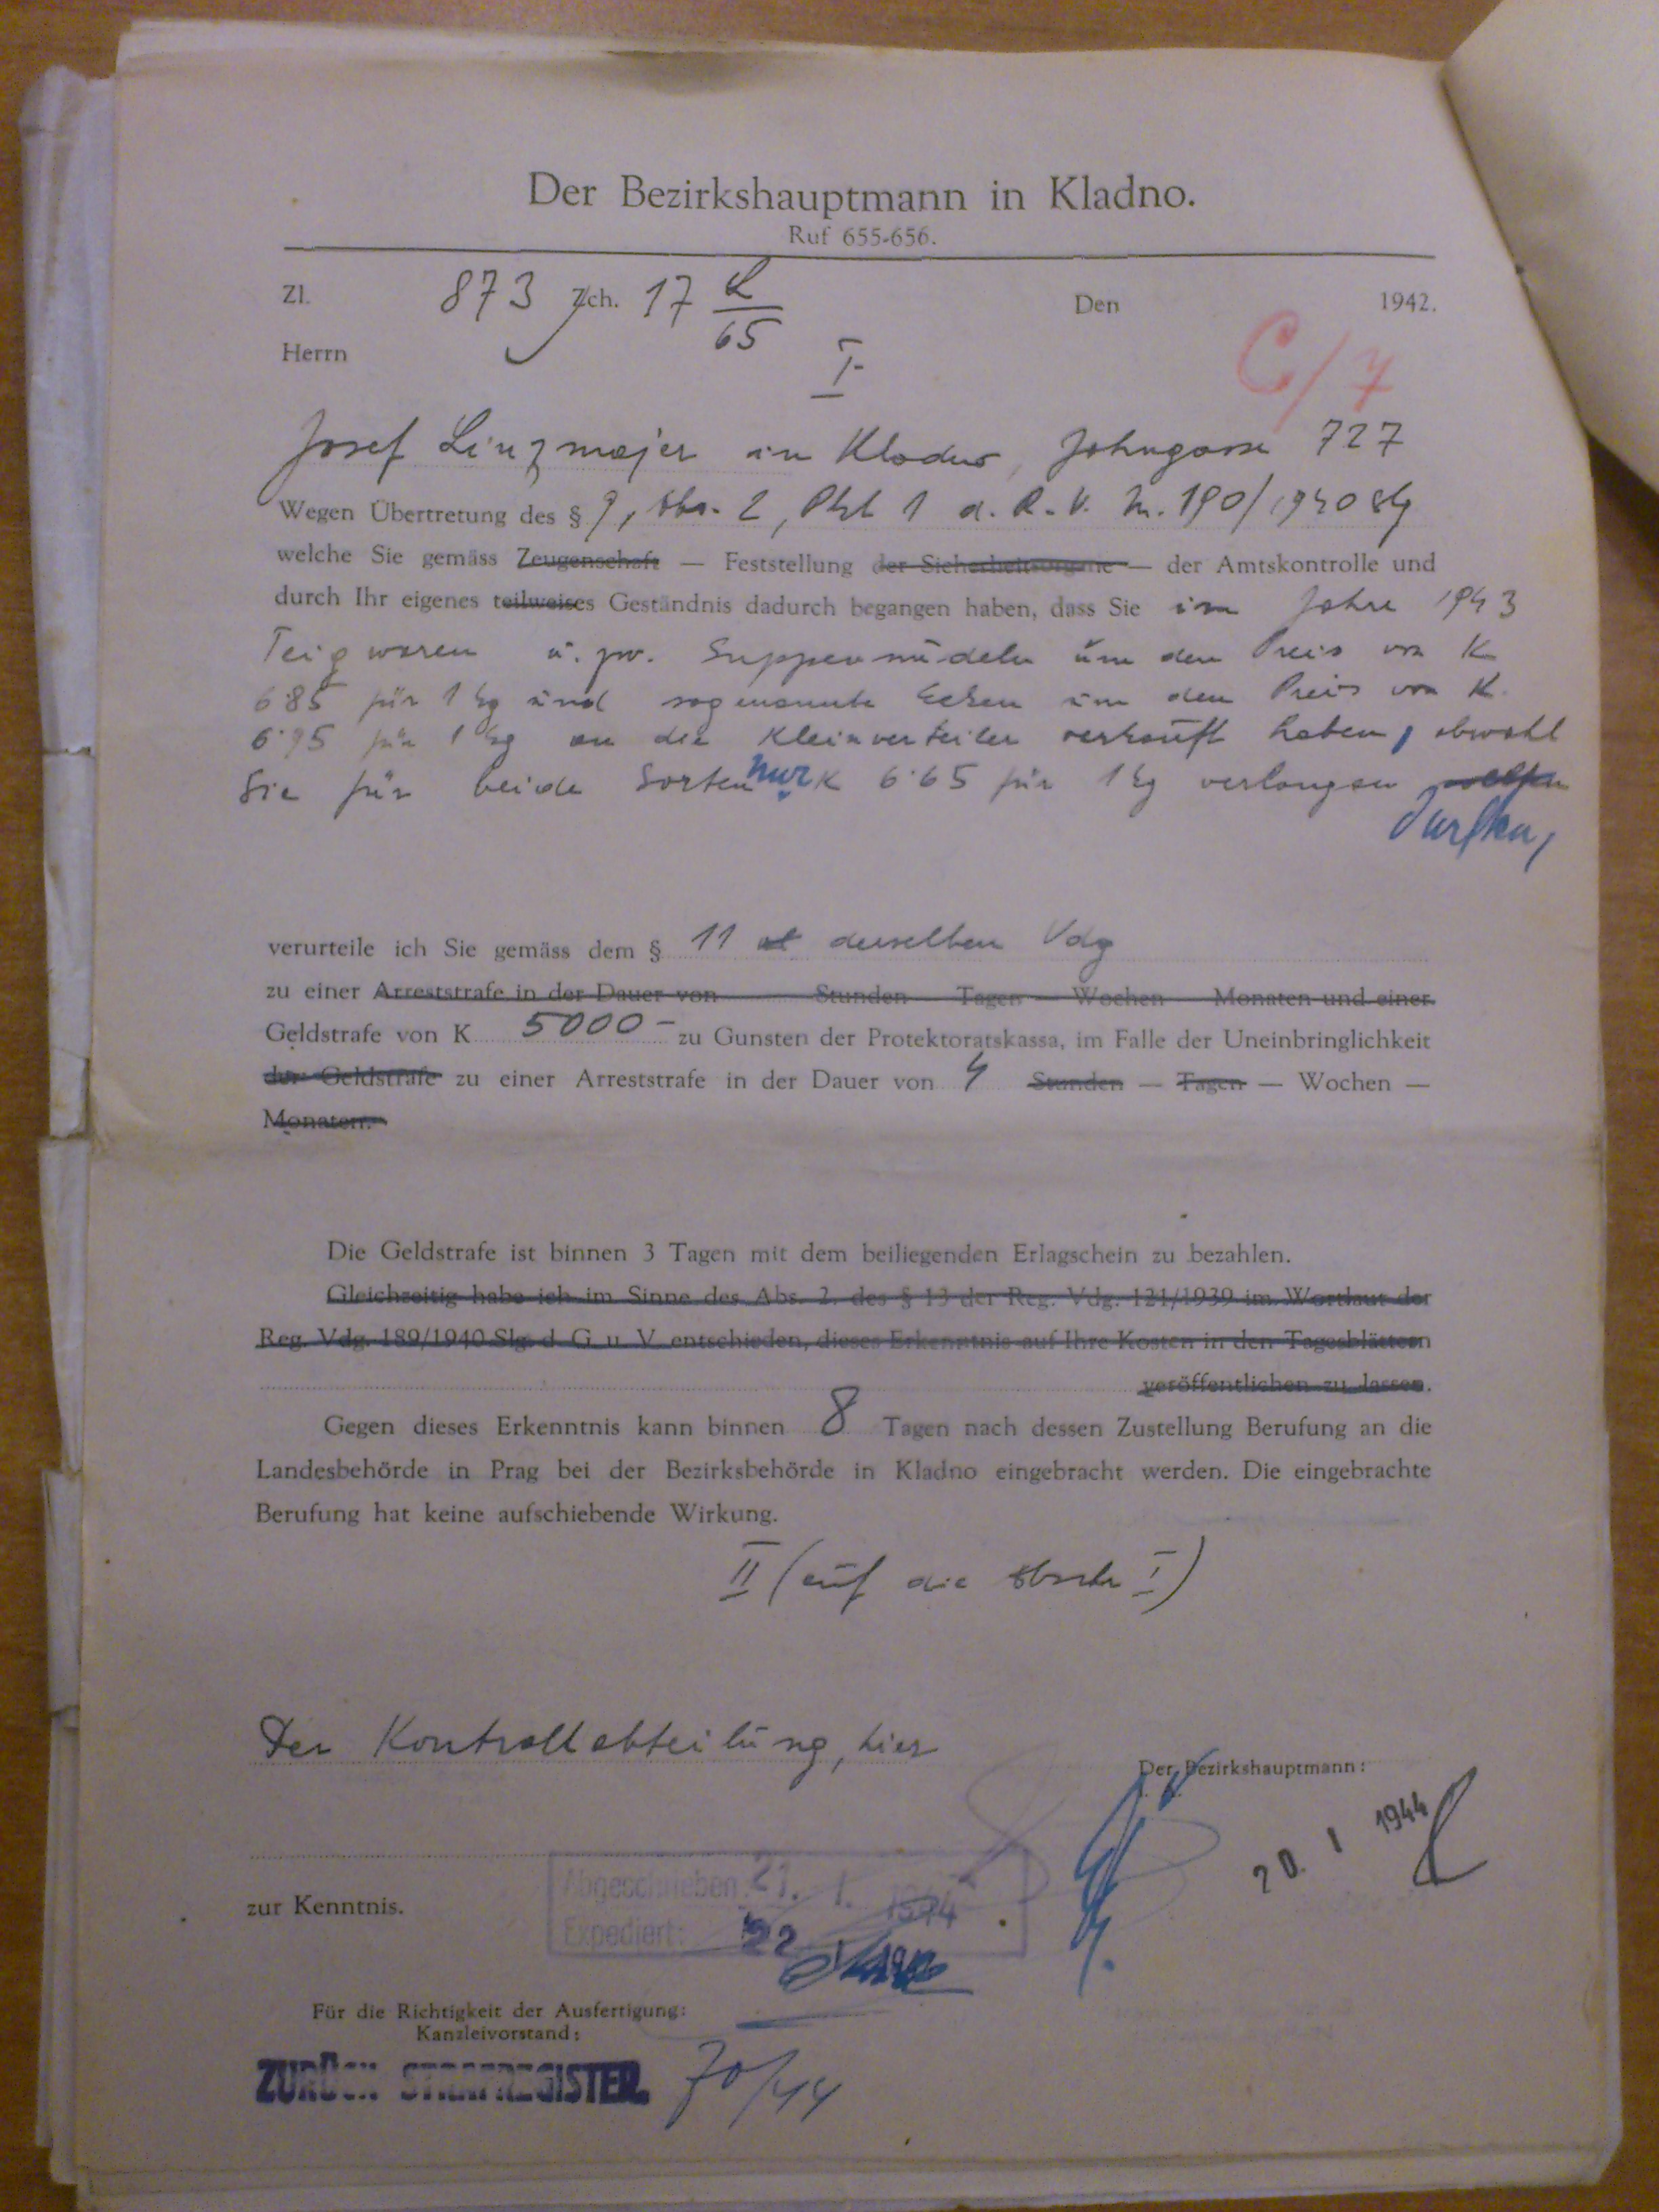 Der Bezirkshauptmann in Kladno.
Ruf 655-656.
Zl. 873 Zch. 17 L/65 Den 1942.
Herrn
I
C/7
Josef Linzmajer in Kladno, Johngasse 727
Wegen Übertretung des § 9, Abs. 2, Pkt 1 d. R. V. Nr. 190/1940 Slg
welche Sie gemäss Zeugenschaft — Feststellung der Sicherheitsorgane — der Amtskontrolle und
durch Ihr eigenes teilweises Geständnis dadurch begangen haben, dass Sie im Jahre 1943
Teigwaren u. zw. Suppennudeln um den Preis von K
6·85 für 1 kg und sogenannte Ecken um den Preis von K
6·95 für 1 kg an die Kleinverteiler verkauft haben, obwohl
Sie für beide Sorten nur K 6·65 für 1 kg verlangen sollten
durften,
verurteile ich Sie gemäss dem § 11 derselben Vdg
zu einer Arreststrafe in der Dauer von Stunden Tagen — Wochen Monaten und einer
Geldstrafe von K 5000 — zu Gunsten der Protektoratskassa, im Falle der Uneinbringlichkeit
der Geldstrafe zu einer Arreststrafe in der Dauer von 4 Stunden — Tagen — Wochen —
Monaten.
Die Geldstrafe ist binnen 3 Tagen mit dem beiliegenden Erlagschein zu bezahlen.
Gleichzeitig habe ich im Sinne des Abs. 2. des § 13 der Reg. Vdg. 121/1939 im Wortlaut der
Reg. Vdg. 189/1940 Slg. d. G. u. V. entschieden, dieses Erkenntnis auf Ihre Kosten in den Tagesblättern
veröffentlichen zu lassen.
Gegen dieses Erkenntnis kann binnen 8 Tagen nach dessen Zustellung Berufung an die
Landesbehörde in Prag bei der Bezirksbehörde in Kladno eingebracht werden. Die eingebrachte
Berufung hat keine aufschiebende Wirkung.
II (auf die Abschr I)
Der Kontrollabteilung, hier
Der Bezirkshauptmann:
20. I 1944
zur Kenntnis.
Abgeschrieben: 21. 1. 1944
Expediert: 22
Für die Richtigkeit der Ausfertigung:
Kanzleivorstand:
ZURÜCK STRAFREGISTER. 70/44